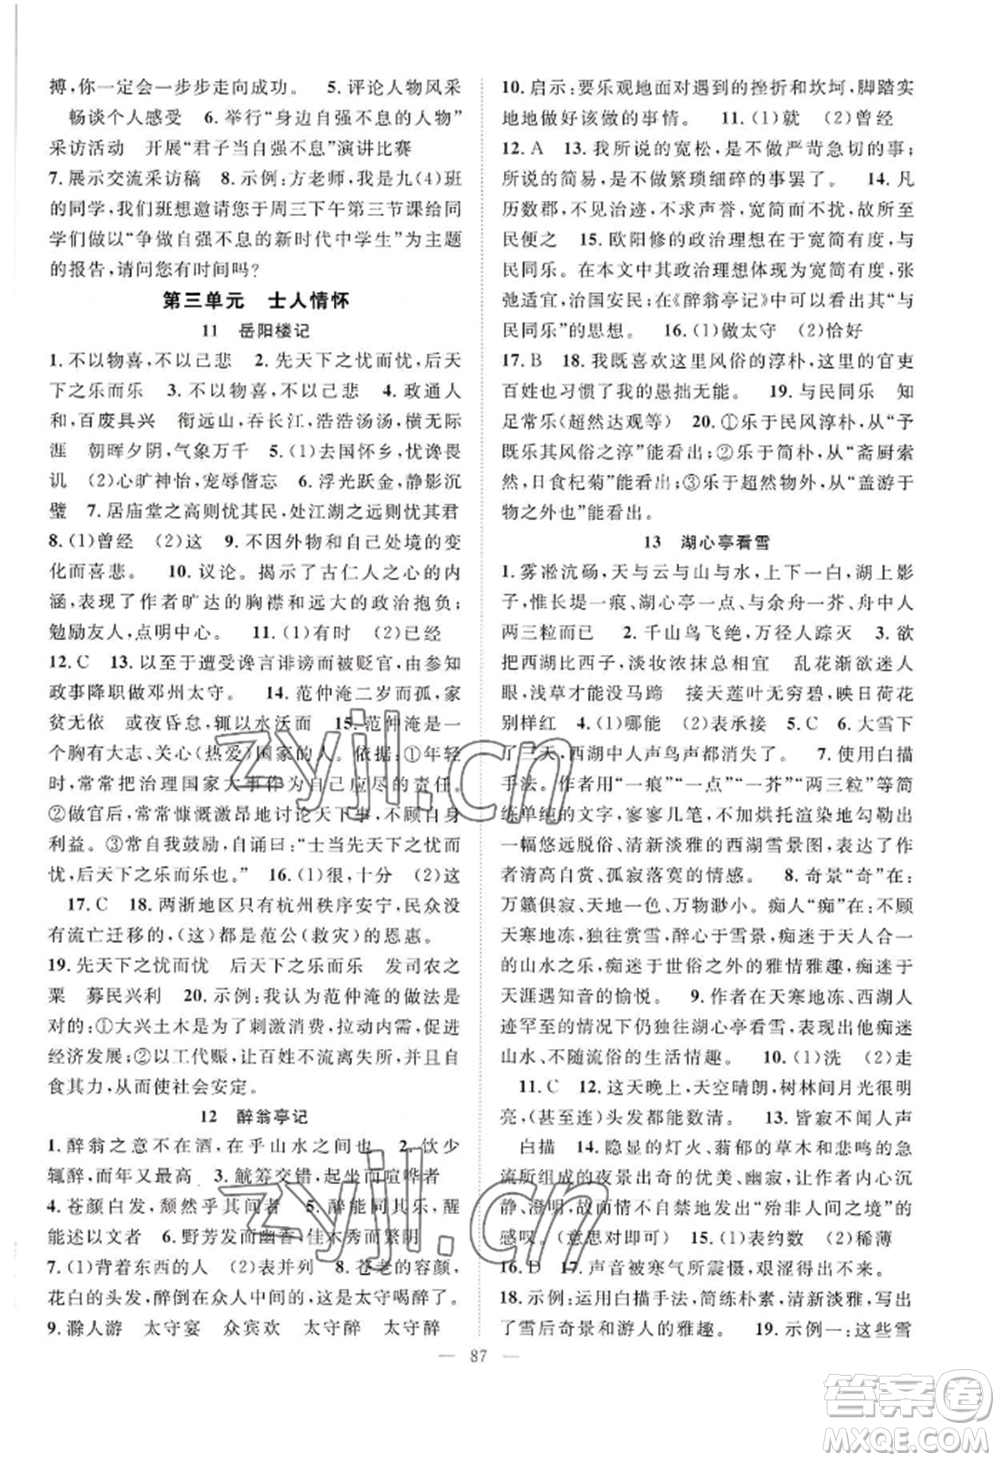 搏,你一定会一步步走向成功。　5. 评论人物风采
畅谈个人感受　6. 举行“身边自强不息的人物”
采访活动　开展“君子当自强不息”演讲比赛
7. 展示交流采访稿　8. 示例:方老师,我是九(4)班
的同学,我们班想邀请您于周三下午第三节课给同
学们做以“争做自强不息的新时代中学生”为主题
的报告,请问您有时间吗?
第三单元　士人情怀
11　岳阳楼记
1. 不以物喜,不以己悲　2. 先天下之忧而忧,后天
下之乐而乐　3. 不以物喜,不以己悲　4. 政通人
和,百废具兴　衔远山,吞长江,浩浩汤汤,横无际
涯　朝晖夕阴,气象万千　5. (1)去国怀乡,忧谗畏
讥　(2)心旷神怡,宠辱偕忘　6. 浮光跃金,静影沉
璧　7. 居庙堂之高则忧其民,处江湖之远则忧其君
8. (1)曾经　(2)这　9. 因外物和自己处境的变
化而喜悲。　10. 议论。揭示了古仁人之心的内
涵,表现了作者旷达的胸襟和远大的政治抱负;
勉励友人,点明中心。　11. (1)有时　(2)已经
12. C　13. 以至于遭受谗言诽谤而被贬官,由参知
政事降职做邓州太守。　14. 范仲淹二岁而孤,家
贫无依　或夜昏怠,辄以水沃面　15. 范仲淹是一
个胸有大志、关心(热爱)国家的人。依据:①年轻
时,常常把治理国家大事作为自己应尽的责任。
②做官后,常常慷慨激昂地谈论天下事,不顾个人
利益。③常自我鼓励,自诵曰:“士当先天下之忧而
忧,后天下之乐而乐也。”　16. (1)很,十分　(2)这
17. C　18. 两浙地区只有杭州秩序安宁,民众没
有流亡迁移的,(这)都是范公(救灾)的恩惠。
19. 先天下之忧而忧　后天下之乐而乐　发司农之
粟　募民兴利　20. 示例:我认为范仲淹的做法是
对的:①大兴土木是为了刺激消费,拉动内需,促进
经济发展;②以工代赈,让百姓不用背井离乡,
从而使社会安定。
12　醉翁亭记
1. 醉翁之意不在酒,在乎山水之间也　2. 饮少
辄醉,而年又最高　3. 觥筹交错,起坐而喧哗者
4. 苍颜白发,颓然乎其间者　5. 醉能同其乐,醒
能述以文者　6. 野芳发而幽香,佳木秀而繁阴
7. (1)背着东西的人　(2)并列　8. 苍老的容颜,
花白的头发,醉倒在众人中间的,是太守喝醉了。
9. 滁人游　太守宴　众宾欢　太守醉　太守醉
10. 启示:要乐观地面对人生的挫折和坎坷,脚踏实
地地做好该做的事情。　11. (1)就　(2)曾经
12. A　13. 我所说的宽松,是不做严苛急切的事;
所说的简易,是不做繁琐细碎的事罢了。　14. 凡
历数郡,不见治迹,不求声誉,宽简而不扰,故所至
民便之　15. 欧阳修的政治理想在于宽简有度,与
民同乐。在本文中其政治理想表现为宽简有度,张
弛适宜,治国安民;其政治理想在《醉翁亭记》中表现为
与民同乐”的思想。　16. (1)做太守　(2)恰好
17. B　18. 我既喜欢这里风俗的淳朴,这里的官吏
百姓也习惯了我的愚拙无能。　19. 与民同乐　知
足常乐(超然达观等)　20. ①乐于民风淳朴,从“予
既乐其风俗之淳”能看出;②乐于简朴,从“斋厨索
然,日食杞菊”能看出;③乐于超然物外,从“盖游于
物之外也”能看出。
13　湖心亭看雪
1. 雾凇沆砀,天与云与山与水,上下一白,湖上影
子,惟长堤一痕、湖心亭一点、与余舟一芥,舟中人
两三粒而已　2. 千山鸟飞绝,万径人踪灭　3. 欲
把西湖比西子,淡妆浓抹总相宜　乱花渐欲迷人
眼,浅草才能没马蹄　接天莲叶无穷碧,映日荷花
别样红　4. (1)哪能　(2)表承接　5. C　6. 大雪下
了三天,西湖中人声鸟声都消失了。　7. 使用白描
手法。作者用“一痕”“一点”“一芥”“两三粒”等简
练单纯的文字,寥寥几笔,不加烘托渲染地勾勒出
一幅悠远脱俗、清新淡雅的西湖雪景图,表现了作
者清高自赏、孤寂落寞的情感。　8. 奇景“奇”在:
万籁俱寂、天地一色、万物渺小。痴人“痴”在:不顾
天寒地冻,独往赏雪,醉心于雪景,痴迷于天人合一
的山水之乐,痴迷于世俗之外的雅情雅趣,痴迷于
天涯遇知音的愉悦。　9. 作者在天寒地冻、西湖人
迹罕至的情况下仍独往湖心亭看雪,表现出他痴迷
山水、不随流俗的生活情趣。　10. (1)洗　(2)走
11. C　12. 这天晚上,天空晴朗,树林间月光很明
亮,(甚至连)头发都能数清。　13. 皆寂不闻人声
白描　14. 隐显的灯火、蓊郁的草木和悲鸣的急
流所组成的夜景出奇的优美、幽寂,让作者内心沉
静、澄明,从而使作者情不自禁发出“殆非人间之境”的
感叹。(意思对即可)　15. (1)表约数　(2)稀薄
16. D　17. 声音被寒气所震慑,艰涩而没有散开。
18. 示例:运用白描手法,简练朴素,清新淡雅,写出
了雪后奇景和游人的雅趣。　19. 示例一:这些雪
— 87 —
zyjl.cn
zyjl.cn
答案卷
MXQE.COM